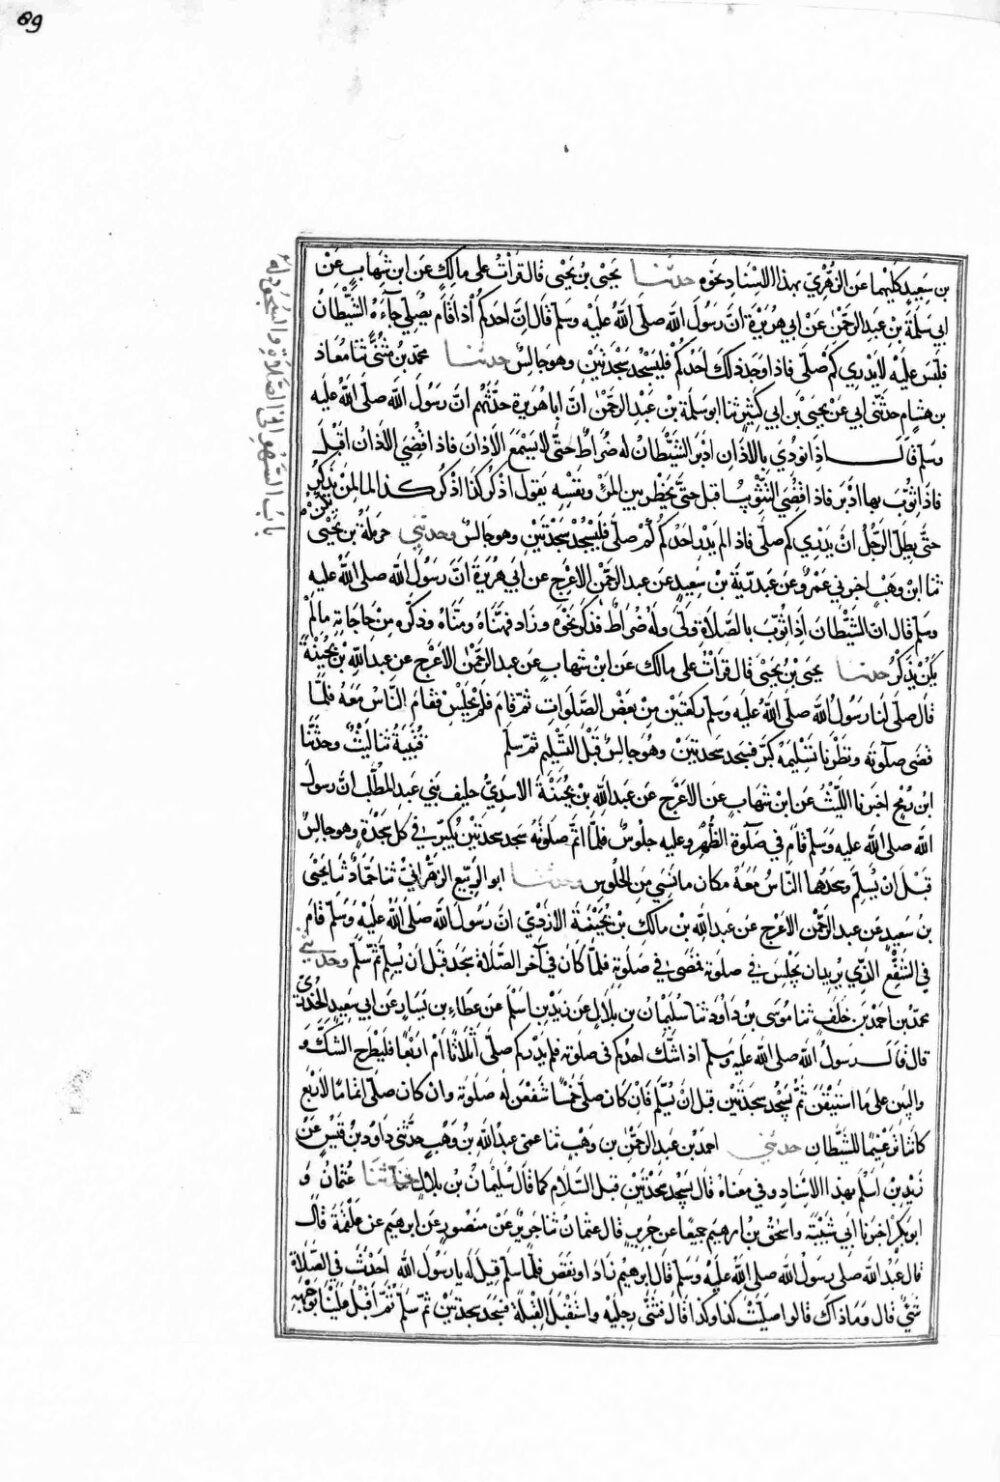 89
باب السهو في الصلاة والسجود له
بن سعيد كليهما عن الزهري بهذا الاسناد نحوه حدثنا يحيى بن يحيى قال قرأت على مالك عن ابن شهاب عن
ابي سلمة بن عبد الرحمن عن ابي هريرة ان رسول الله صلى الله عليه وسلم قال ان احدكم اذا قام يصلي جاءه الشيطان
فلبس عليه لا يدري كم صلى فاذا وجد ذلك احدكم فليسجد سجدتين وهو جالس حدثنا محمد بن مثنى ثنا معاذ
بن هشام حدثني ابي عن يحيى بن ابي كثير ثنا ابو سلمة بن عبد الرحمن ان ابا هريرة حدثهم ان رسول الله صلى الله عليه
وسلم قال اذا نودي بالاذان ادبر الشيطان له ضراط حتى لا يسمع الاذان فاذا قضي الاذان اقبل
فاذا ثوب بها ادبر فاذا قضي التثويب اقبل حتى يخطر بين المرء ونفسه يقول اذكر كذا اذكر كذا لما لم يذكر
يكن
حتى يظل الرجل ان يدري كم صلى فاذا لم يدر احدكم كم صلى فليسجد سجدتين وهو جالس وحدثني حرملة بن يحيى
ثنا ابن وهب اخبرني عمرو عن عبد ربه بن سعيد عن عبد الرحمن الاعرج عن ابي هريرة ان رسول الله صلى الله عليه
وسلم قال ان الشيطان اذا ثوب بالصلاة ولى وله ضراط فذكر نحوه وزاد فهناه ومناه وذكره من حاجاته ما لم
يكن يذكر حدثنا يحيى بن يحيى قال قرأت على مالك عن ابن شهاب عن عبد الرحمن الاعرج عن عبد الله بن بحينة
قال صلى لنا رسول الله صلى الله عليه وسلم ركعتين من بعض الصلوات ثم قام فلم يجلس فقام الناس معه فلما
قضى صلوته ونظرنا تسليمه كبر فسجد سجدتين وهو جالس قبل التسليم ثم سلم قتيبة ثنا ليث وحدثنا
ابن رمح اخبرنا الليث عن ابن شهاب عن الاعرج عن عبد الله بن بحينة الاسدي حليف بني عبد المطلب ان رسول
الله صلى الله عليه وسلم قام في صلوة الظهر وعليه جلوس فلما اتم صلوته سجد سجدتين يكبر في كل سجدة وهو جالس
قبل ان يسلم وسجدها الناس معه مكان ما نسي من الجلوس وحدثنا ابو الربيع الزهراني ثنا حماد ثنا يحيى
بن سعيد عن عبد الرحمن الاعرج عن عبد الله بن مالك بن بحينة الازدي ان رسول الله صلى الله عليه وسلم قام
في الشفع الذي يريد ان يجلس في صلوته فمضى في صلوته فلما كان في آخر الصلاة سجد قبل ان يسلم ثم سلم وحدثني
محمد بن احمد بن خلف ثنا موسى بن داود ثنا سليمان بن بلال عن زيد بن اسلم عن عطاء بن يسار عن ابي سعيد الخدري
قال قال رسول الله صلى الله عليه وسلم اذا شك احدكم في صلوته فلم يدر كم صلى أثلاثا أم اربعا فليطرح الشك و
وليبن على ما استيقن ثم يسجد سجدتين قبل ان يسلم فان كان صلى خمسا شفعن له صلوته وان كان صلى اتماما لاربع
كانتا ترغيما للشيطان حدثني احمد بن عبد الرحمن بن وهب ثنا عمي عبد الله بن وهب حدثني داود بن قيس عن
زيد بن اسلم بهذا الاسناد وفي معناه قال يسجد سجدتين قبل السلام كما قال سليمان بن بلال حدثنا عثمان و
ابو بكر اخبرنا ابي شيبة واسحق بن ابرهيم جميعا عن جرير قال عثمان ثنا جرير عن منصور عن ابرهيم عن علقمة قال
قال عبد الله صلى رسول الله صلى الله عليه وسلم قال ابرهيم زاد او نقص فلما سلم قيل له يا رسول الله احدث في الصلاة
شيء قال وما ذاك قالوا صليت كذا وكذا قال فثنى رجليه واستقبل القبلة فسجد سجدتين ثم سلم ثم أقبل علينا بوجهه